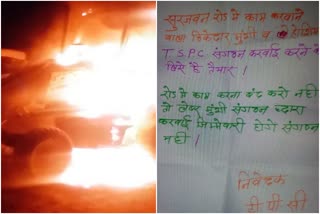 सुरजवन रोड मे काम करवाने
वाला ठिकेदार मुंशी व
T S P C संगठन करवाई करने के
लिये है तैयार !
रोड मे काम करना बंद करो नही
तो लेवर मुंशी संगठन द्वारा
करवाई जिम्मेवारी होगे संगठन
नही !
निवेदक
टी.पी.सी